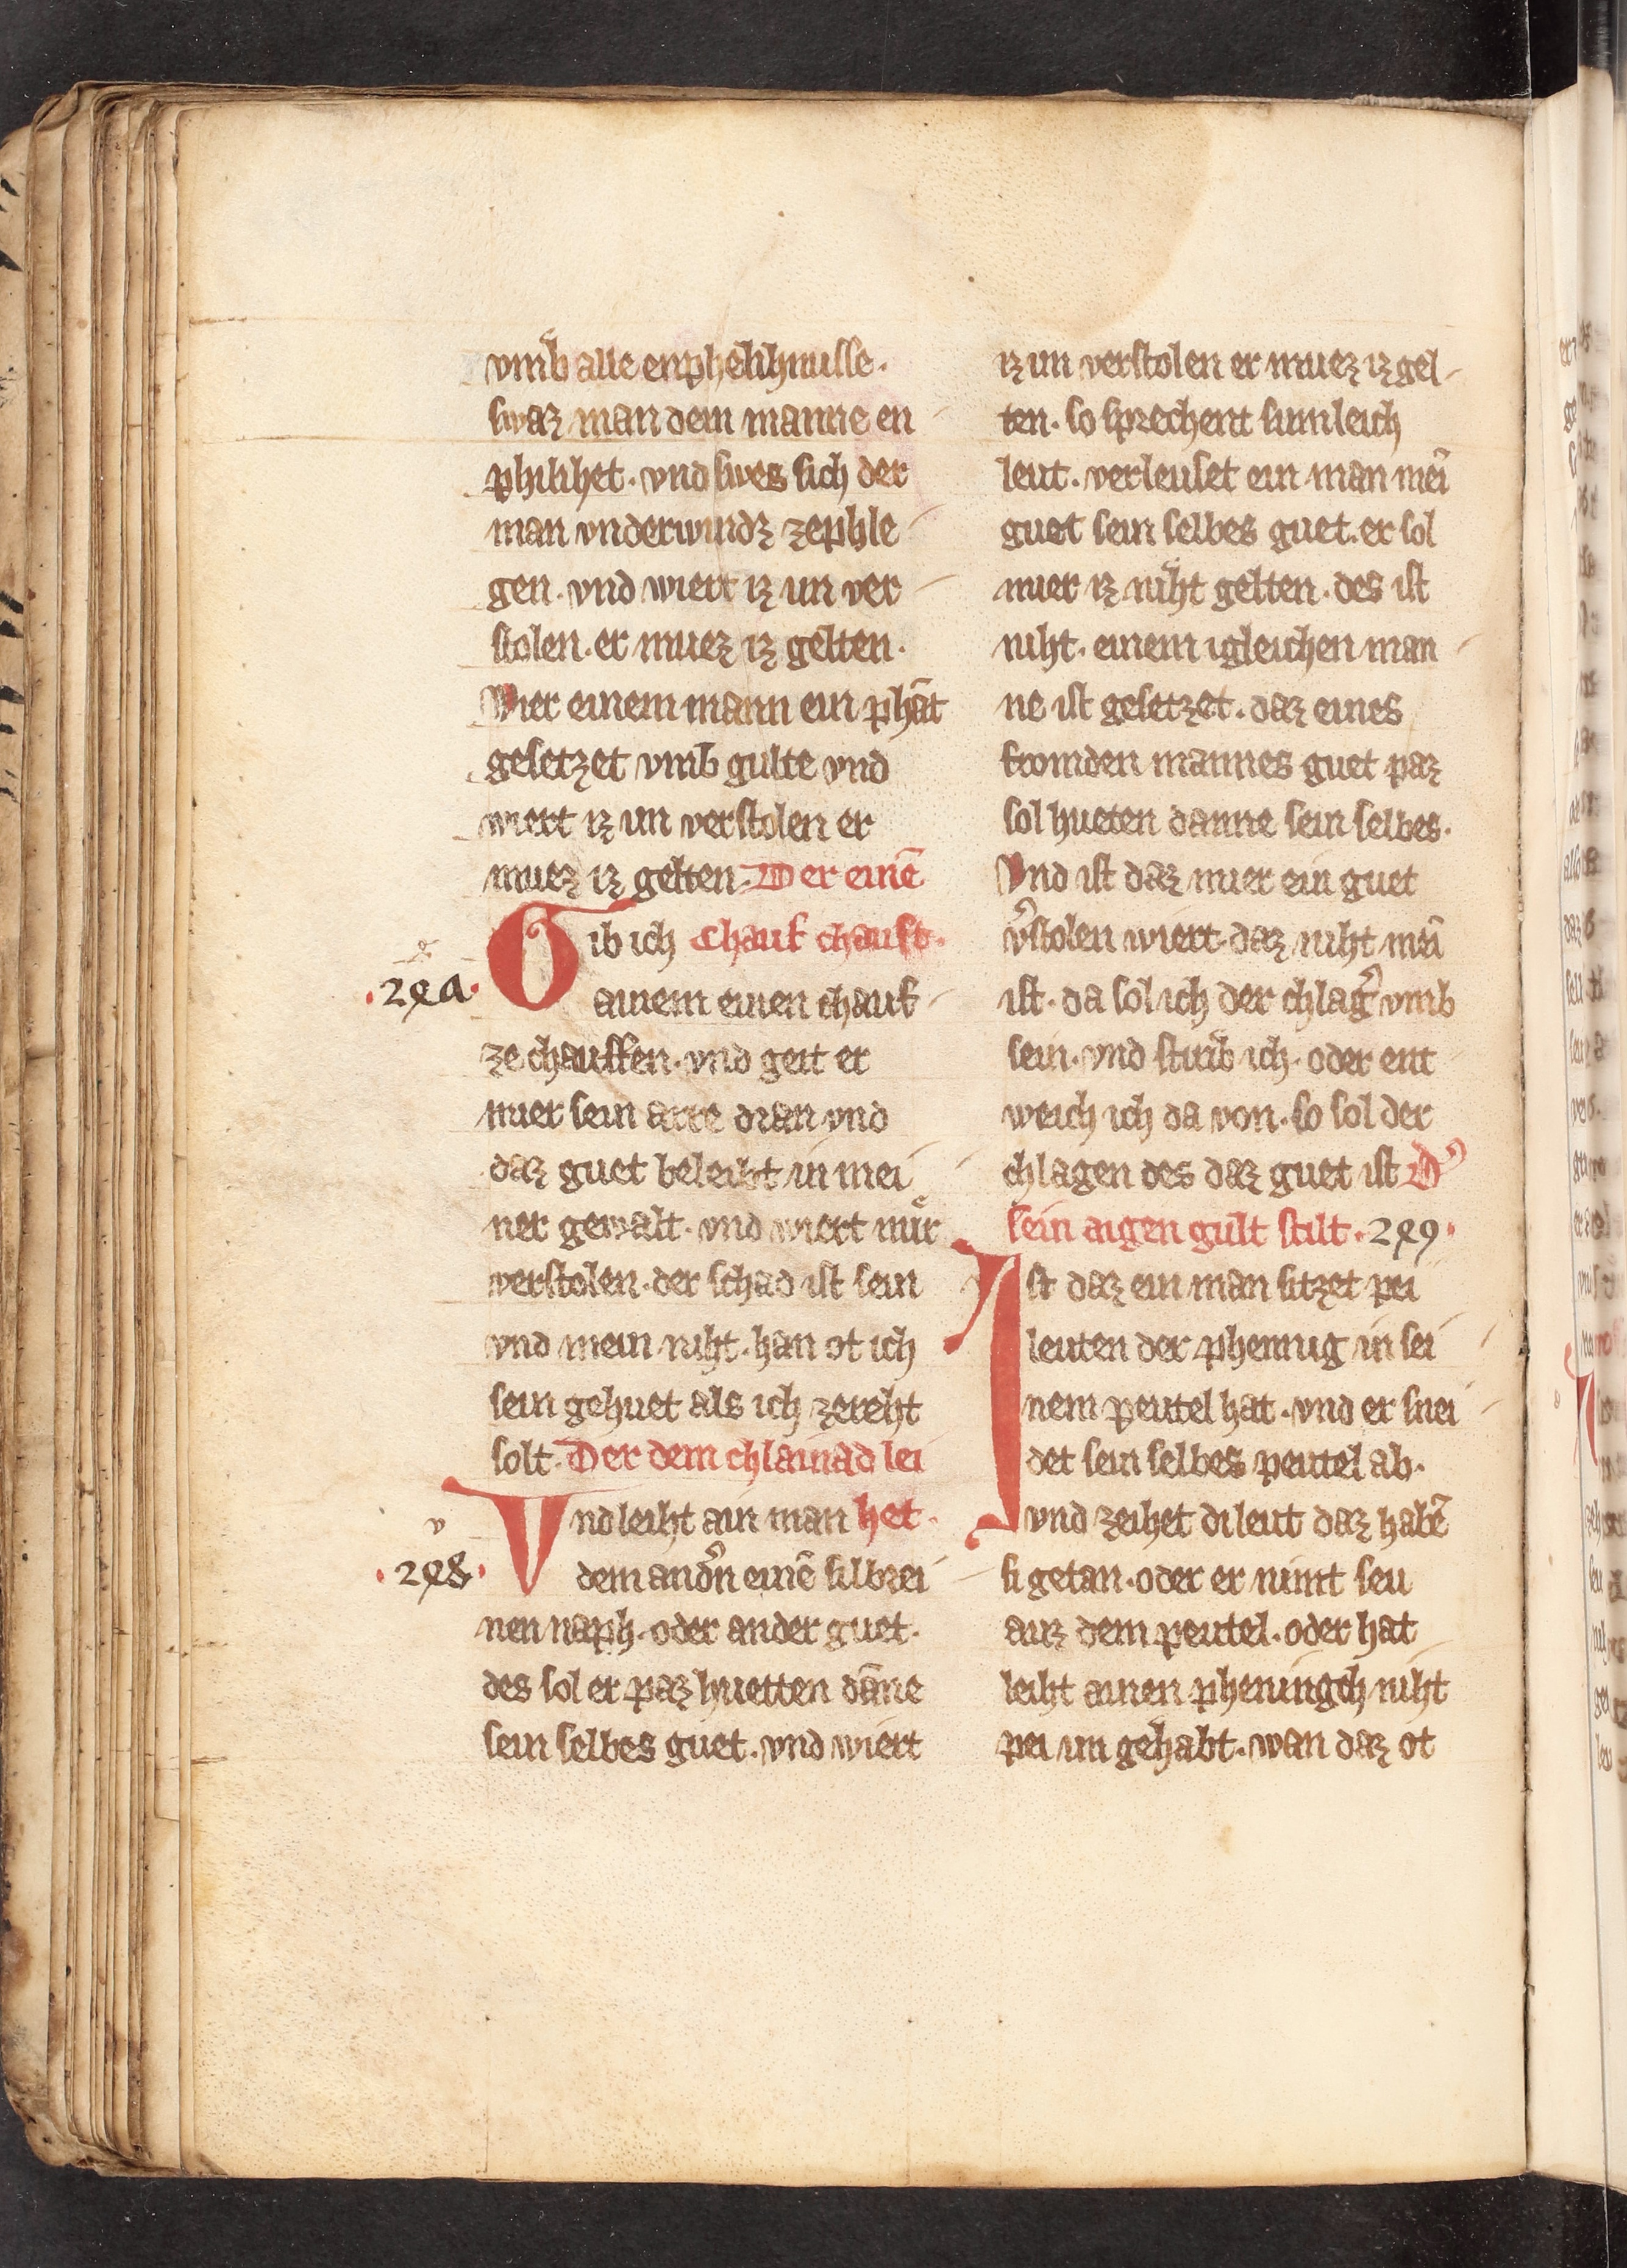 vmb alle enphelihnusse.
swaz man dem manne en
philihet. vnd swes sich der
man vnderwindz zephle
gen. vnd wiert iz im ver
stolen. er muez iz gelten.
Wier einem mann ein phāt
gesetzet vmb gulte vnd
wiert iz im verstolen er
muez iz gelten. Der einē
Gib ich chauf chauft.
.297.
ainem einen chauf
ze chauffen. vnd geit er
mier sein arre dran vnd
daz guet beleibt in mei
ner gewalt. vnd wiert mir
verstolen. der schad ist sein
vnd mein niht. han ot ich
sein gehuet als ich zereht
solt. Der dem chlainad lei
Vnd leiht ain man het.
v
.298.
dem andn̄ einē silbrei
nen naph. oder ander guet.
des sol er paz huetten dāne
sein selbes guet. vnd wiert
iz im verstolen er muez iz gel
ten. so sprechent sumleich
leut. verleuset ein man mei
guet sein selbes guet. er sol
mier iz niht gelten. des ist
niht. einem igleichen man
ne ist gesetzet. daz eines
fromden mannes guet paz
sol hueten danne sein selbes.
Vnd ist daz mier ein guet
v̄stolen wiert. daz niht mei
ist. da sol ich der chlag̃ vmb
sein. vnd stirib ich. oder ent
weich ich da von. so sol der
chlagen des daz guet ist D̾
sein aigen gult stilt. 299.
Ist daz ein man sitzet pei
leuten der phennig in sei
nem peutel hat. vnd er snei
det sein selbes peutel ab.
vnd zeihet di leut daz habē
si getan. oder er nimt seu
auz dem peutel. oder hat
leiht ainen pheningch niht
pei im gehabt. wan daz ot